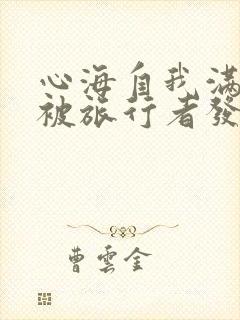 心海自我滿
被旅行者發
曹雲金